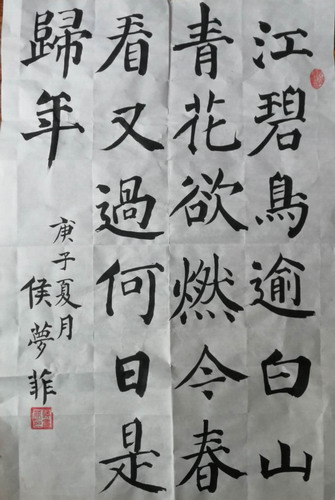 江碧鳥逾白山
青花欲燃今春
看又過何日是
歸年
庚子夏月
侯夢菲